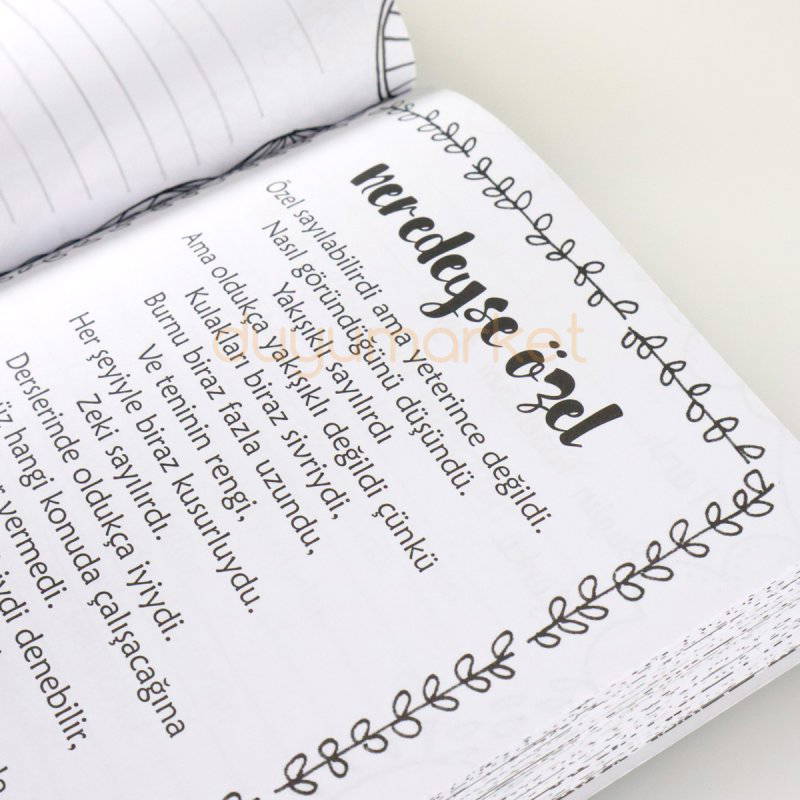 neredeyse özel
Özel sayılabilirdi ama yeterince değildi.
Nasıl göründüğünü düşündü.
Yakışıklı sayılırdı
Ama oldukça yakışıklı değildi çünkü
Kulakları biraz sivriydi,
Burnu biraz fazla uzundu,
Ve teninin rengi,
Her şeyiyle biraz kusurluydu.
Zeki sayılırdı.
Derslerinde oldukça iyiydi.
hangi konuda çalışacağına
vermedi.
denebilir,
duyumarket